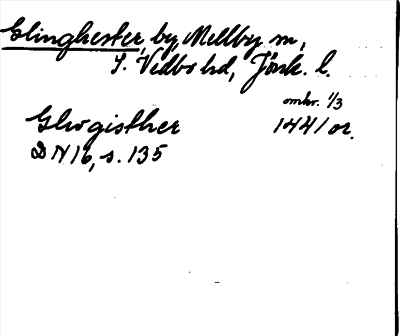 Glinghester, by, Mellby sn,
S. Vedbo hd, Jönk. l.
omkr. 1/3
Ghogisther 1441 or.
DN 16, s. 135